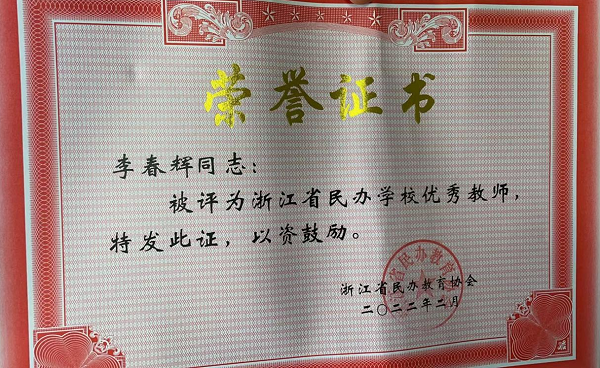 荣誉证书
李春辉同志：
被评为浙江省民办学校优秀教师，
特发此证，以资鼓励。
浙江省民办教育协会
二〇二二年二月